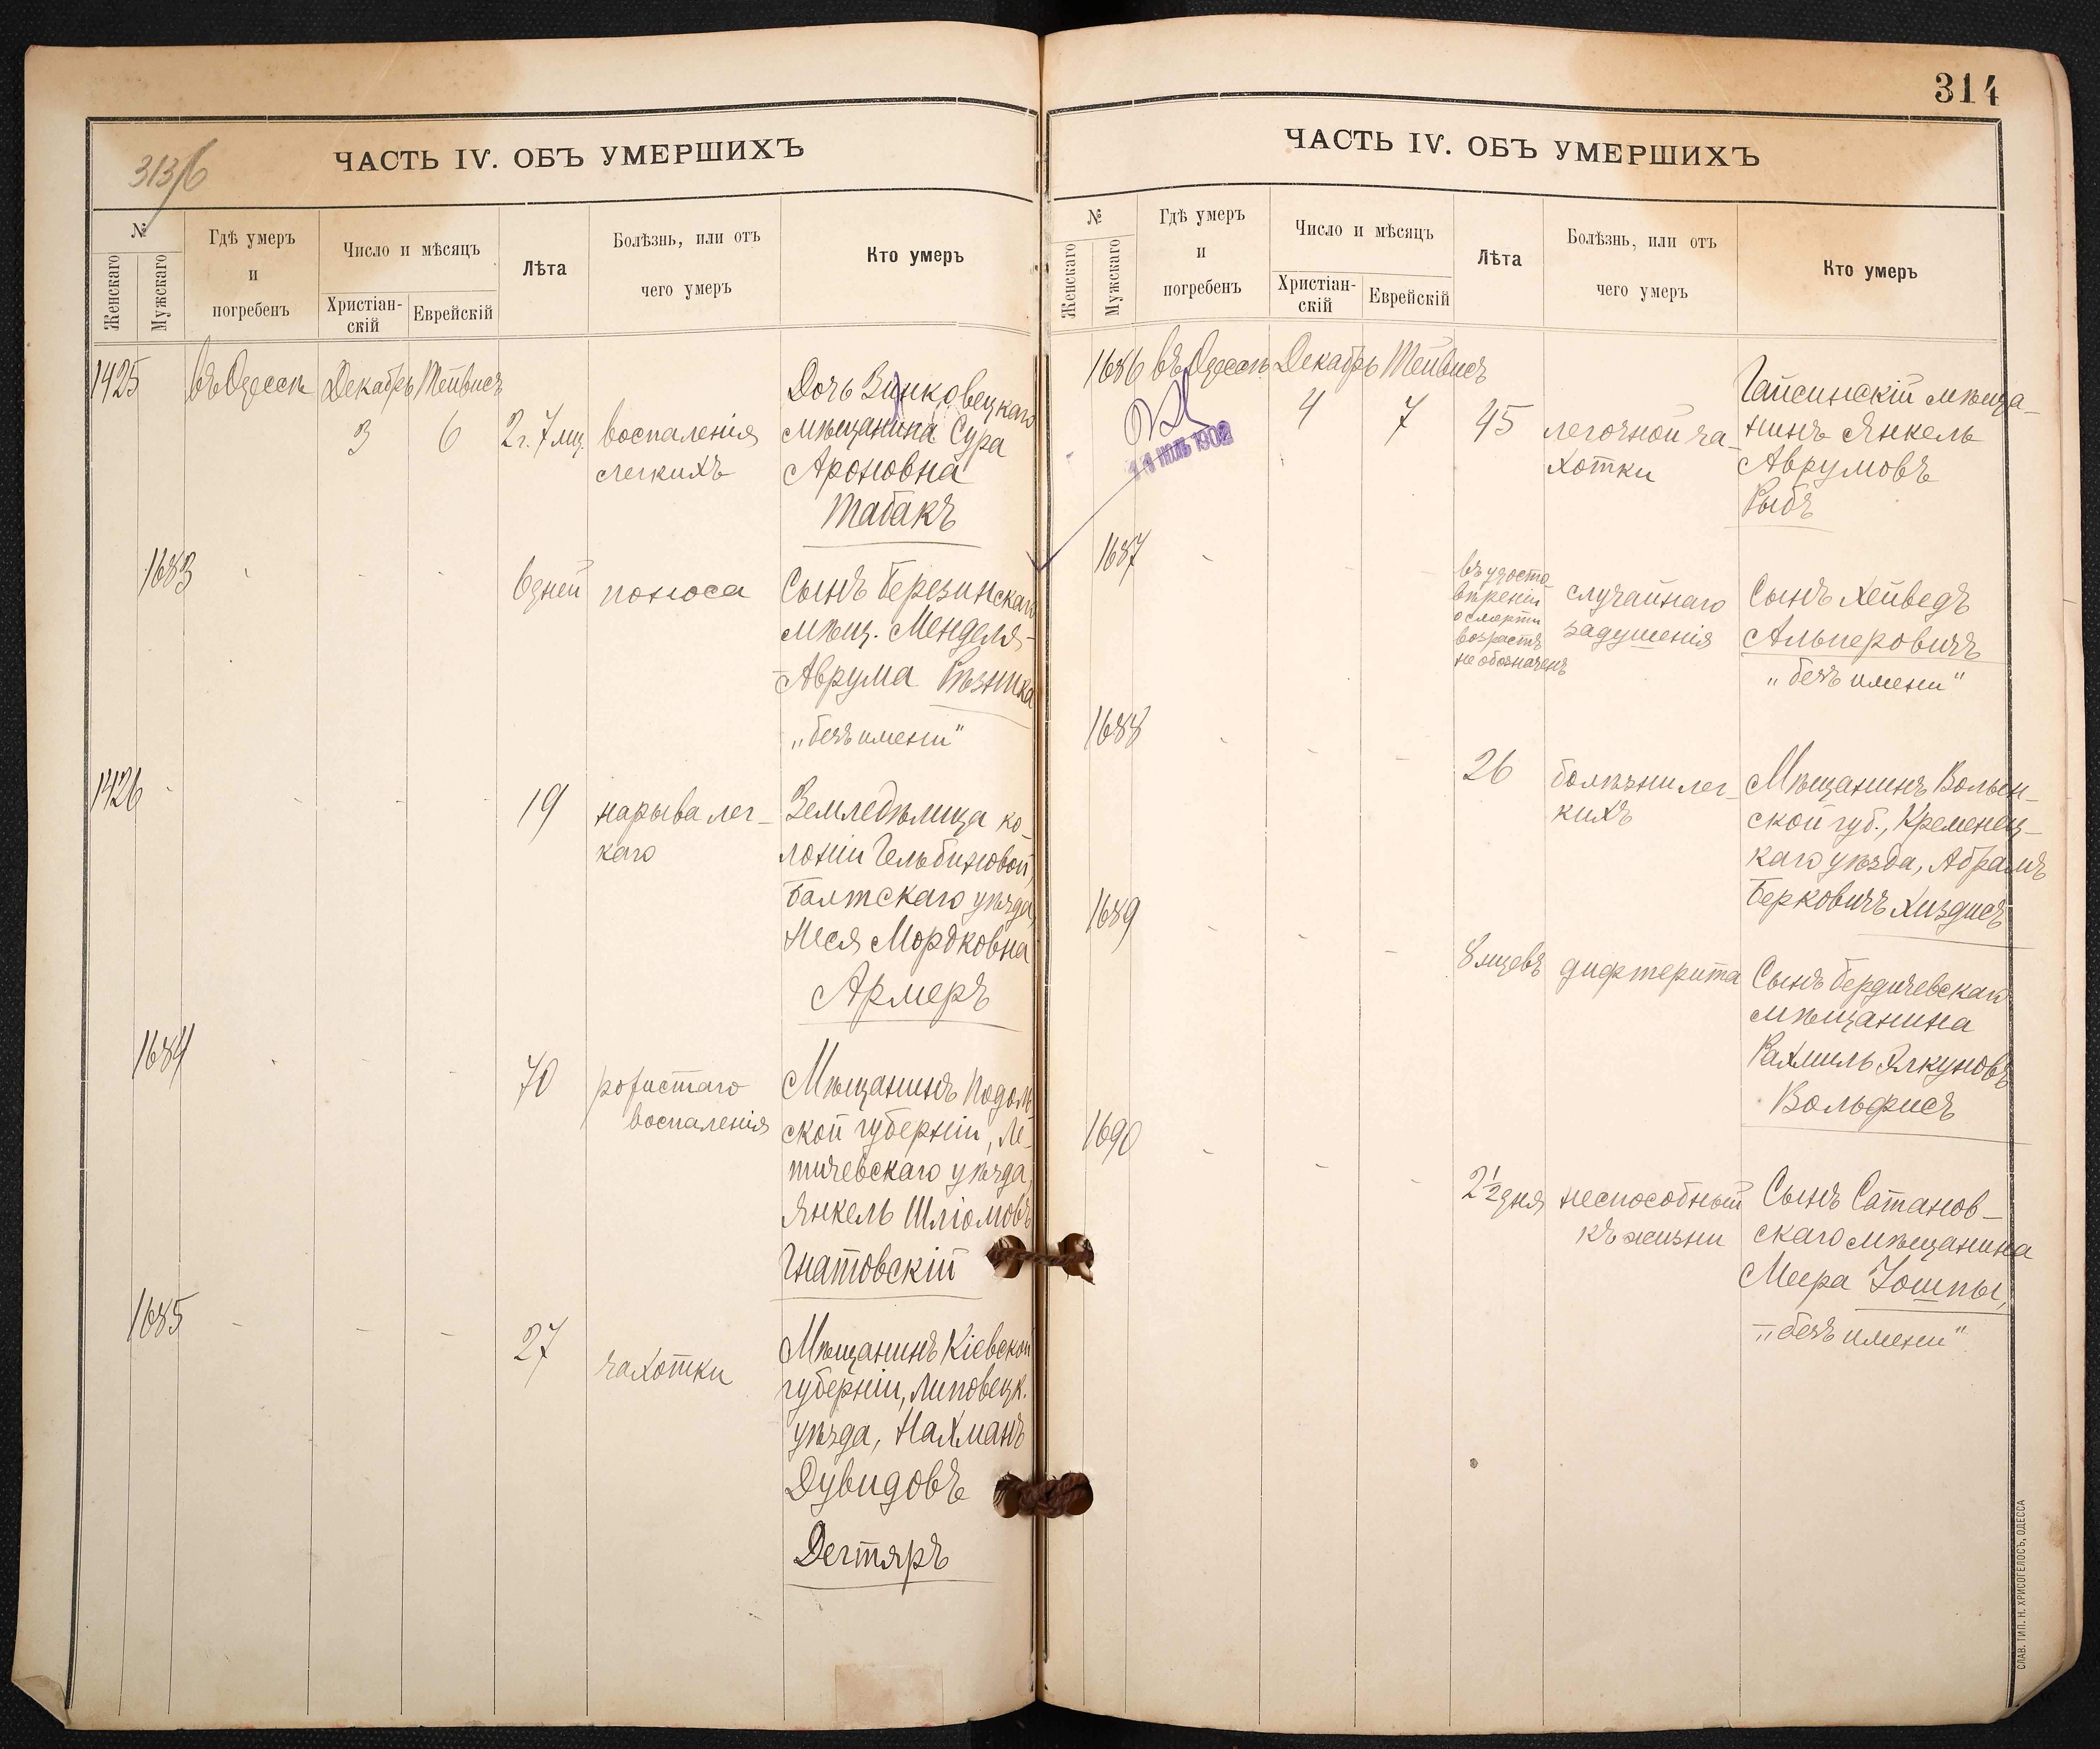 313/б
ЧАСТЬ IV. ОБЪ УМЕРШИХЪ
№
Женскаго
Мужскаго
Гдѣ умеръ
и
погребенъ
Число и мѣсяцъ
Христіан-
скій
Еврейскій
Лѣта
Болѣзнь, или отъ
чего умеръ
Кто умеръ
1425 въ Одессѣ Декабрь Тейвисъ
3 6 2 г. 7 мц. воспаленія
легкихъ
Дочь Зиньковецкаго
мѣщанина Сура
Ароновна
Табакъ
1683 - - - 6 дней поноса
Сынъ Березинскаго
мѣщ. Менделя-
Аврума Рѣзника
„безъ имени"
1426 - - - - 19 нарыва лег-
каго
Земледѣлица ко-
лоніи Гельбиновой,
Балтскаго уѣзда,
Неся Мордковна
Армеръ
1684 - - - 70 рожистаго
воспаленія
Мѣщанинъ Подоль-
ской губерніи, Ле-
тичевскаго уѣзда,
Янкель Шліомовъ
Гнатовскій
1685 - - - 27 чахотки
Мѣщанинъ Кіевской
губерніи, Липовецк.
уѣзда, Нахманъ
Дувидовъ
Дегтяръ
314
ЧАСТЬ IV. ОБЪ УМЕРШИХЪ
№
Женскаго
Мужскаго
Гдѣ умеръ
и
погребенъ
Число и мѣсяцъ
Христіан-
скій
Еврейскій
Лѣта
Болѣзнь, или отъ
чего умеръ
Кто умеръ
1686 въ Одессѣ Декабрь Тейвисъ
4 7 45 легочной ча-
хотки
Гайсинскій мѣща-
нинъ Янкель
Аврумовъ
Рыбъ
1902
1687 - - - въ удосто-
вѣреніи
о смерти
возрастъ
не обозначенъ
случайнаго
задушенія
Сынъ Хейведъ
Альперовичъ
„безъ имени"
1688 - - - 26 болѣзни лег-
кихъ
Мѣщанинъ Волын-
ской губ., Кременец-
каго уѣзда, Абрамъ
Берковичъ Хиздисъ
1689 - - - 8 мцевъ дифтерита
Сынъ Бердичевскаго
мѣщанина
Рахмиль Ялкуновъ
Вольфисъ
1690 - - - 2½ дня неспособный
къ жизни
Сынъ Сатанов-
скаго мѣщанина
Меера Іошпы,
„безъ имени"
СЛАВ. ТИП. Н. ХРИСОГЕЛОСЪ, ОДЕССА